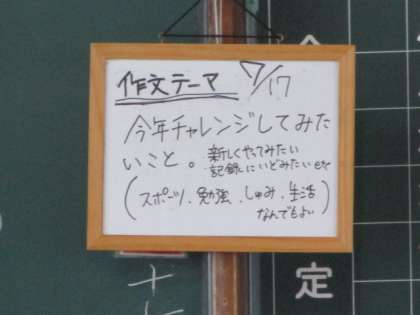 作文テーマ 7/17
今年チャレンジしてみた
いこと。・新しくやってみたい
・記録にいどみたい etc
(スポーツ、勉強、しゅみ、生活
なんでもよい)
定